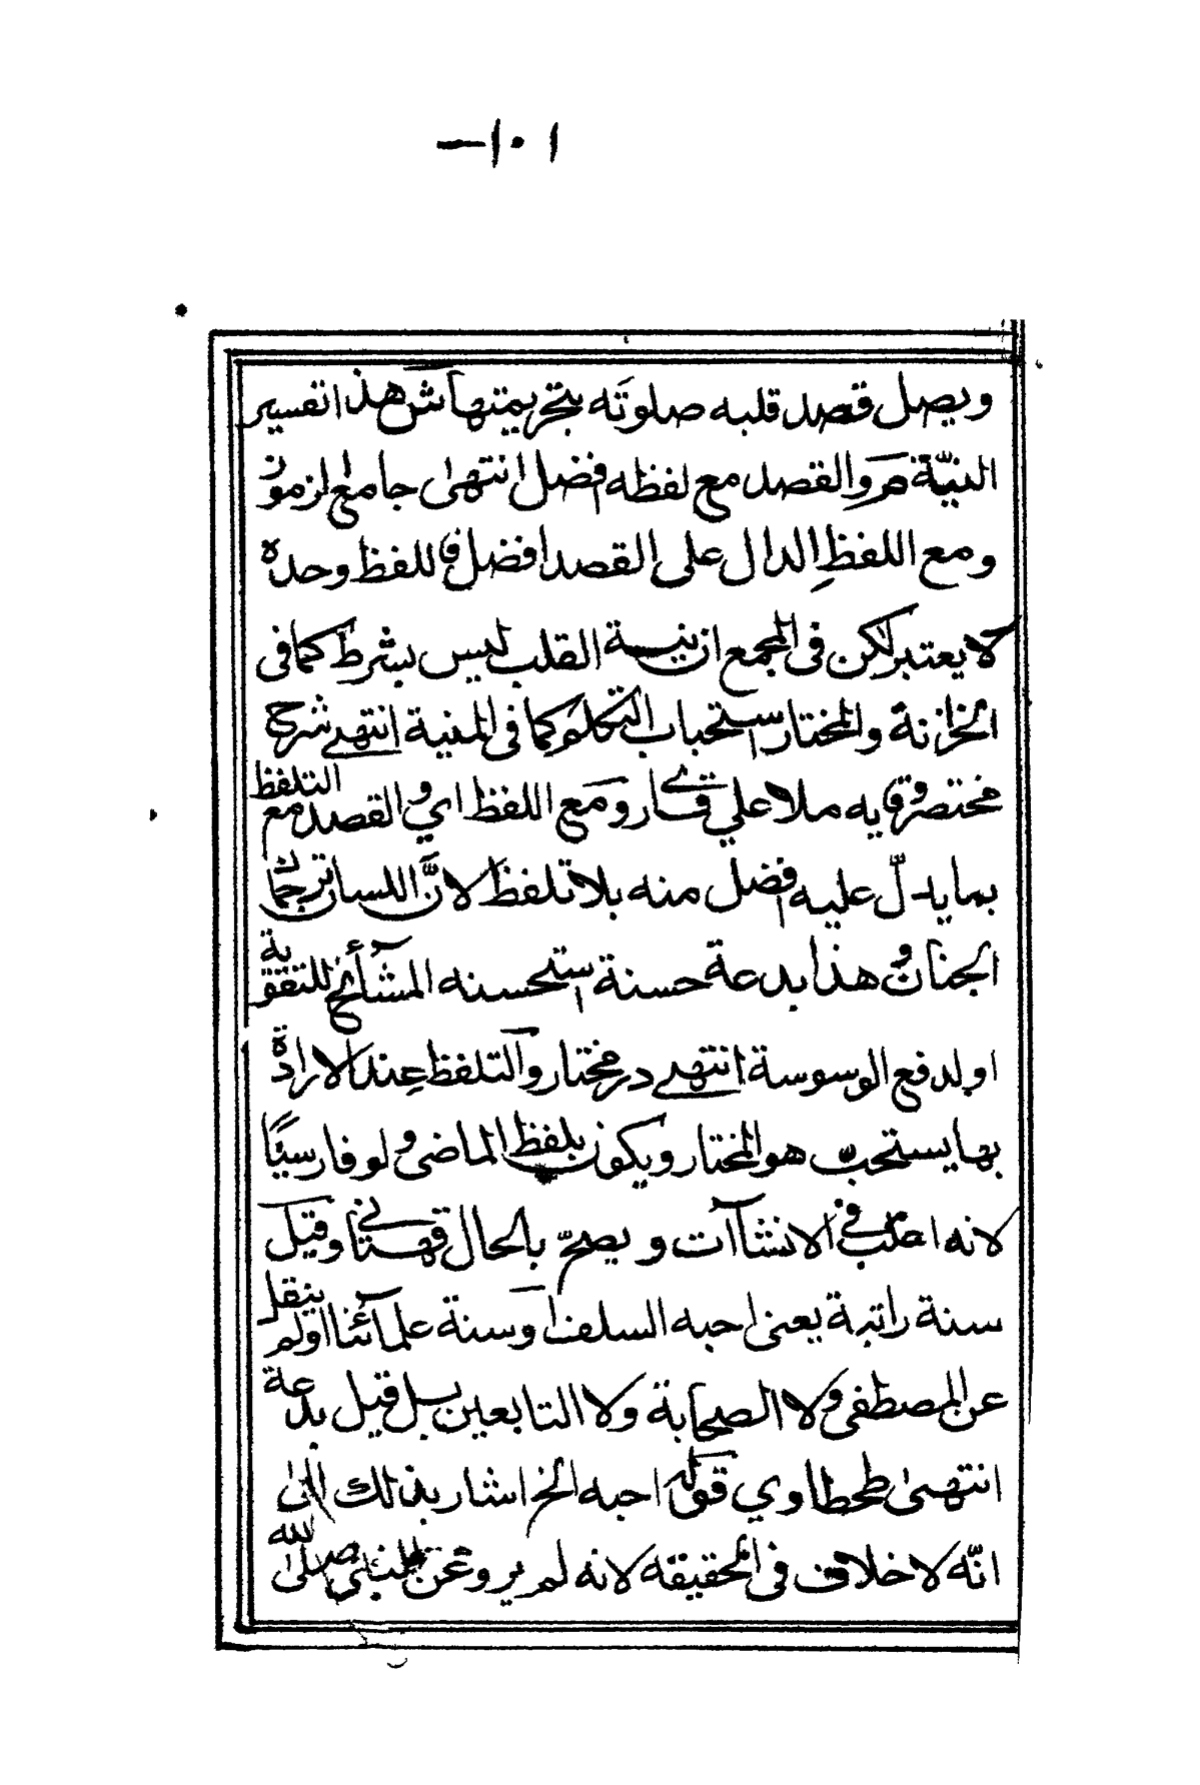 ١٠١-
ويصل قصد قلبه صلوته بتحريمتها ش هذا تفسير
النيّة مر والقصد مع لفظه افضل انتهى جامع الرموز
ومع اللفظِ الدال على القصد افضل فاللفظ وحده
لا يعتبر لكن فى المجمع ان نية القلب ليس بشرط كما فى
الخزانة والمختار استحباب التكلم كما فى المنية انتهى شرح
مختصر وقايه ملا علي قارے ومع اللفظ اي والقصد مع التلفظ
بما يدلّ عليه افضل منه بلا تلفظ لانَّ اللسان ترجمان
الجنان وهذا بدعة حسنة استحسنه المشائخ للتقوية
او لدفع الوسوسة انتهى در مختار والتلفظ عِند الارادة
بها يستحبّ هو المختار ويكون بلفظ الماضى ولو فارسيًّا
لانه اغلب فى الانشاآت ويصحّ بالحال قهستانى وقيل
سنة راتبة يعنى احبه السلف او سنة علمآئنا اولم ينقل
عن المصطفى ولا الصحابة ولا التابعين بل قيل بدعة
انتهى طحطاوي قوله احبه الخ اشار بذلك الى
انّه لا خلاف فى الحقيقة لانه لم يرو عن النبى صلى الله